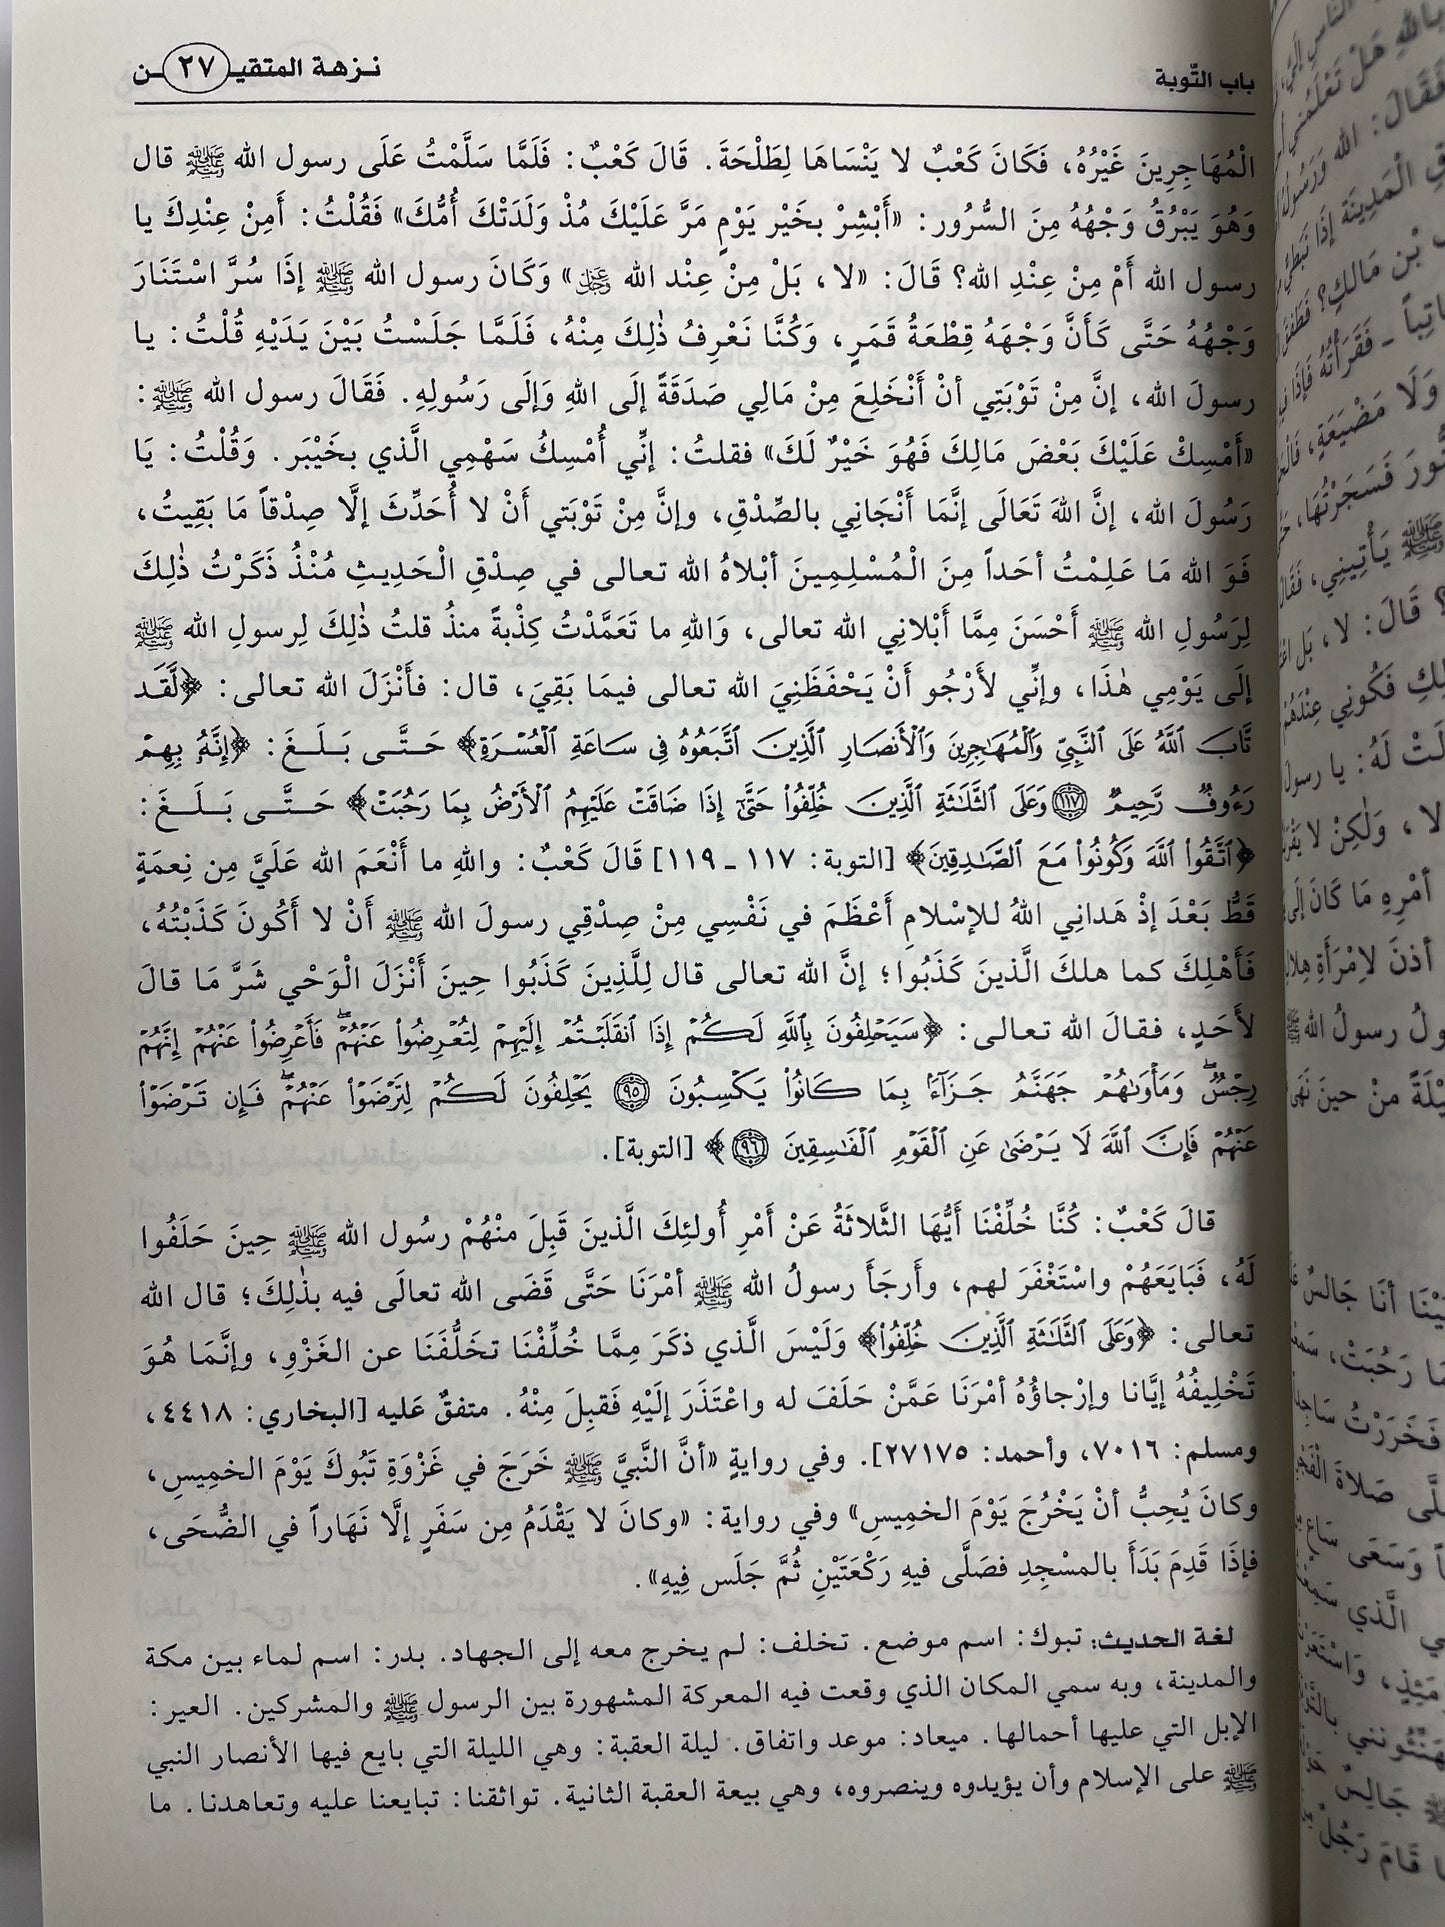 باب التّوبة
نـزهـة المتقيـ ٢٧ ـن
الْمُهَاجِرِينَ غَيْرُهُ، فَكَانَ كَعْبٌ لا يَنْسَاهَا لِطَلْحَةَ. قَالَ كَعْبٌ: فَلَمَّا سَلَّمْتُ عَلَى رسول الله ﷺ قال
وَهُوَ يَبْرُقُ وَجْهُهُ مِنَ السُّرُور: «أَبْشِرْ بخَيْر يَوْمٍ مَرَّ عَلَيْكَ مُذْ وَلَدَتْكَ أُمُّكَ» فَقُلْتُ: أَمِنْ عِنْدِكَ يا
رسول الله أَمْ مِنْ عِنْدِ الله؟ قَالَ: «لا، بَلْ مِنْ عِند الله عز وجل» وَكَانَ رسول الله ﷺ إذَا سُرَّ اسْتَنَارَ
وَجْهُهُ حَتَّى كَأَنَّ وَجْهَهُ قِطْعَةُ قَمَرٍ، وَكُنَّا نَعْرِفُ ذٰلِكَ مِنْهُ، فَلَمَّا جَلَسْتُ بَيْنَ يَدَيْهِ قُلْتُ: يا
رسولَ الله، إنَّ مِنْ تَوْبَتِي أنْ أَنْخَلِعَ مِنْ مَالِي صَدَقَةً إلَى اللهِ وَإلَى رَسُولِهِ. فَقَالَ رسول الله ﷺ:
«أَمْسِكْ عَلَيْكَ بَعْضَ مَالِكَ فَهُوَ خَيْرٌ لَكَ» فقلتُ: إنِّي أُمْسِكُ سَهْمِي الَّذي بخَيْبَر. وَقُلْتُ: يَا
رَسُولَ الله، إنَّ اللهَ تَعَالَى إنَّمَا أَنْجَانِي بالصِّدْقِ، وإنَّ مِنْ تَوْبَتي أَنْ لا أُحَدِّثَ إلَّا صِدْقاً مَا بَقِيتُ،
فَوَ الله مَا عَلِمْتُ أحَداً مِنَ الْمُسْلِمِينَ أبْلاهُ الله تعالى في صِدْقِ الْحَدِيثِ مُنْذُ ذَكَرْتُ ذٰلِكَ
لِرَسُولِ الله ﷺ أَحْسَنَ مِمَّا أَبْلانِي الله تعالى، وَاللهِ ما تَعَمَّدْتُ كِذْبةً منذُ قلتُ ذٰلِكَ لِرسولِ الله ﷺ
إلَى يَوْمِي هٰذَا، وإنِّي لأَرْجُو أَنْ يَحْفَظَنِيَ الله تعالى فيمَا بَقِيَ، قال: فأَنْزَلَ الله تعالى: ﴿لَّقَد
تَّابَ ٱللَّهُ عَلَى ٱلنَّبِيِّ وَٱلْمُهَٰجِرِينَ وَٱلْأَنصَارِ ٱلَّذِينَ ٱتَّبَعُوهُ فِي سَاعَةِ ٱلْعُسْرَةِ﴾ حَـتَّـى بَـلَـغَ: ﴿إِنَّهُۥ بِهِمْ
رَءُوفٌ رَّحِيمٌ ١١٧ وَعَلَى ٱلثَّلَٰثَةِ ٱلَّذِينَ خُلِّفُواْ حَتَّىٰٓ إِذَا ضَاقَتْ عَلَيْهِمُ ٱلْأَرْضُ بِمَا رَحُبَتْ﴾ حَـتَّـى بَـلَـغَ:
﴿ٱتَّقُواْ ٱللَّهَ وَكُونُواْ مَعَ ٱلصَّٰدِقِينَ﴾ [التوبة: ١١٧ ـ ١١٩] قَالَ كَعْبٌ: واللهِ ما أَنْعَمَ الله عَلَيَّ مِن نِعمَةٍ
قَطُّ بَعْدَ إذْ هَدانِي اللهُ للإسْلامِ أَعْظَمَ في نَفْسِي مِنْ صِدْقِي رسولَ الله ﷺ أَنْ لا أَكُونَ كَذَبْتُهُ،
فَأَهْلِكَ كما هلكَ الَّذينَ كَذَبُوا؛ إنَّ الله تعالى قال لِلَّذِينَ كَذَبُوا حِينَ أَنْزَلَ الْوَحْي شَرَّ مَا قالَ
لأَحَدٍ، فقالَ الله تعالى: ﴿سَيَحْلِفُونَ بِٱللَّهِ لَكُمْ إِذَا ٱنقَلَبْتُمْ إِلَيْهِمْ لِتُعْرِضُواْ عَنْهُمْۖ فَأَعْرِضُواْ عَنْهُمْ إِنَّهُمْ
رِجْسٌۖ وَمَأْوَىٰهُمْ جَهَنَّمُ جَزَآءًۢ بِمَا كَانُواْ يَكْسِبُونَ ٩٥ يَحْلِفُونَ لَكُمْ لِتَرْضَوْاْ عَنْهُمْۖ فَإِن تَرْضَوْاْ
عَنْهُمْ فَإِنَّ ٱللَّهَ لَا يَرْضَىٰ عَنِ ٱلْقَوْمِ ٱلْفَٰسِقِينَ ٩٦﴾ [التوبة].
قالَ كَعْبٌ: كُنَّا خُلِّفْنَا أَيُّهَا الثَّلاثَةُ عَنْ أَمْرِ أُولئِكَ الَّذينَ قَبِلَ منْهُمْ رسُول الله ﷺ حِينَ حَلَفُوا
لَهُ، فَبَايَعَهُمْ واسْتَغْفَرَ لهم، وأَرجَأَ رسولُ الله ﷺ أمْرَنَا حَتَّى قَضَى الله تعالَى فيه بذٰلِكَ؛ قال الله
تعالى: ﴿وَعَلَى ٱلثَّلَٰثَةِ ٱلَّذِينَ خُلِّفُواْ﴾ وَلَيْسَ الَّذي ذكَرَ مِمَّا خُلِّفْنَا تخَلُّفَنَا عن الغَزْوِ، وإنَّمَا هُوَ
تَخْلِيفُهُ إيَّانا وإرْجاؤُهُ أمْرَنَا عَمَّنْ حَلَفَ له واعْتَذَرَ إلَيْهِ فَقبِلَ مِنْهُ. متفقٌ عَليه [البخاري: ٤٤١٨،
ومسلم: ٧٠١٦، وأحمد: ٢٧١٧٥]. وفي روايةٍ «أنَّ النَّبيَّ ﷺ خَرَجَ في غَزْوَةِ تَبُوكَ يَوْمَ الخمِيسِ،
وكانَ يُحِبُّ أنْ يَخْرُجَ يَوْمَ الخمِيسِ» وفي رواية: «وكانَ لا يَقْدَمُ مِن سَفَرٍ إلَّا نَهَاراً في الضُّحَى،
فإذَا قَدِمَ بَدَأَ بالمسْجِدِ فصَلَّى فيهِ رَكْعَتَيْنِ ثُمَّ جَلَس فِيهِ».
لغة الحديث: تبوك: اسم موضع. تخلف: لم يخرج معه إلى الجهاد. بدر: اسم لماء بين مكة
والمدينة، وبه سمي المكان الذي وقعت فيه المعركة المشهورة بين الرسول ﷺ والمشركين. العير:
الإبل التي عليها أحمالها. ميعاد: موعد واتفاق. ليلة العقبة: وهي الليلة التي بايع فيها الأنصار النبي
ﷺ على الإسلام وأن يؤيدوه وينصروه، وهي بيعة العقبة الثانية. تواثقنا: تبايعنا عليه وتعاهدنا. ما